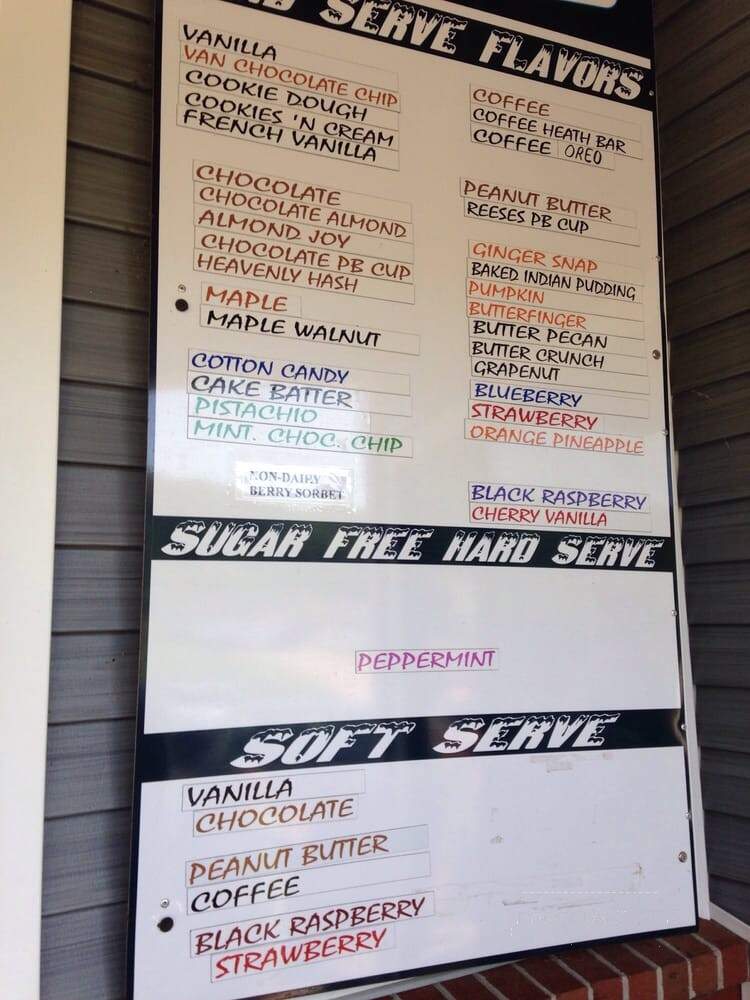 SERVE FLAVORS
VANILLA
VAN CHOCOLATE CHIP
COOKIE DOUGH
COOKIES 'N CREAM
FRENCH VANILLA
CHOCOLATE
CHOCOLATE ALMOND
ALMOND JOY
CHOCOLATE PB CUP
HEAVENLY HASH
MAPLE
MAPLE WALNUT
COTTON CANDY
CAKE BATTER
PISTACHIO
MINT. CHOC. CHIP
NON-DAIRY
BERRY SORBET
COFFEE
COFFEE HEATH BAR
COFFEE OREO
PEANUT BUTTER
REESES PB CUP
GINGER SNAP
BAKED INDIAN PUDDING
PUMPKIN
BUTTERFINGER
BUTTER PECAN
BUTTER CRUNCH
GRAPENUT
BLUEBERRY
STRAWBERRY
ORANGE PINEAPPLE
BLACK RASPBERRY
CHERRY VANILLA
SUGAR FREE HARD SERVE
PEPPERMINT
SOFT SERVE
VANILLA
CHOCOLATE
PEANUT BUTTER
COFFEE
BLACK RASPBERRY
STRAWBERRY